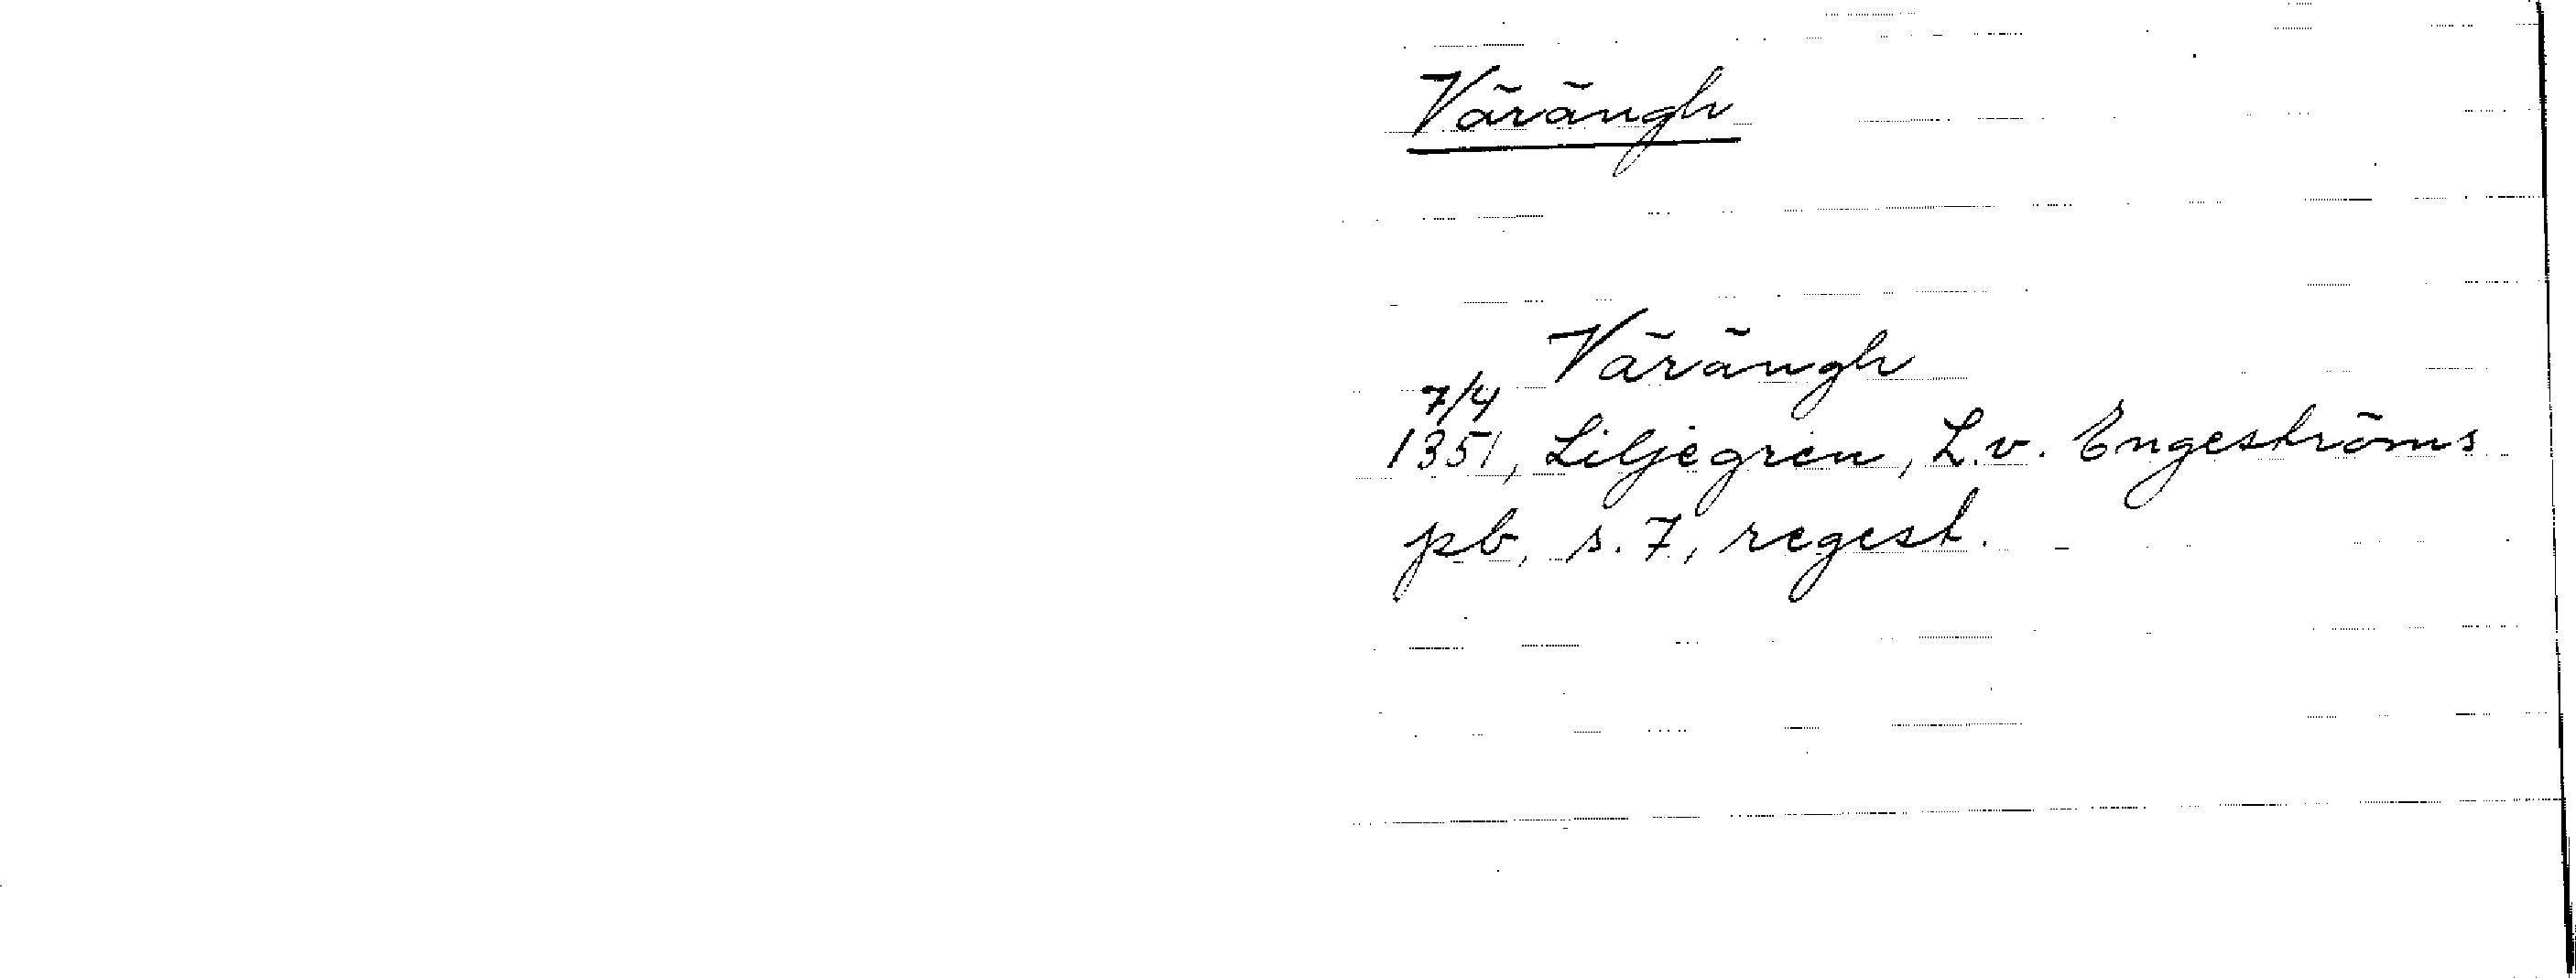 Värängh
Värängh
7/4
1351, Liljegren, L.v. Engeströms
pb, s. 7, regest.